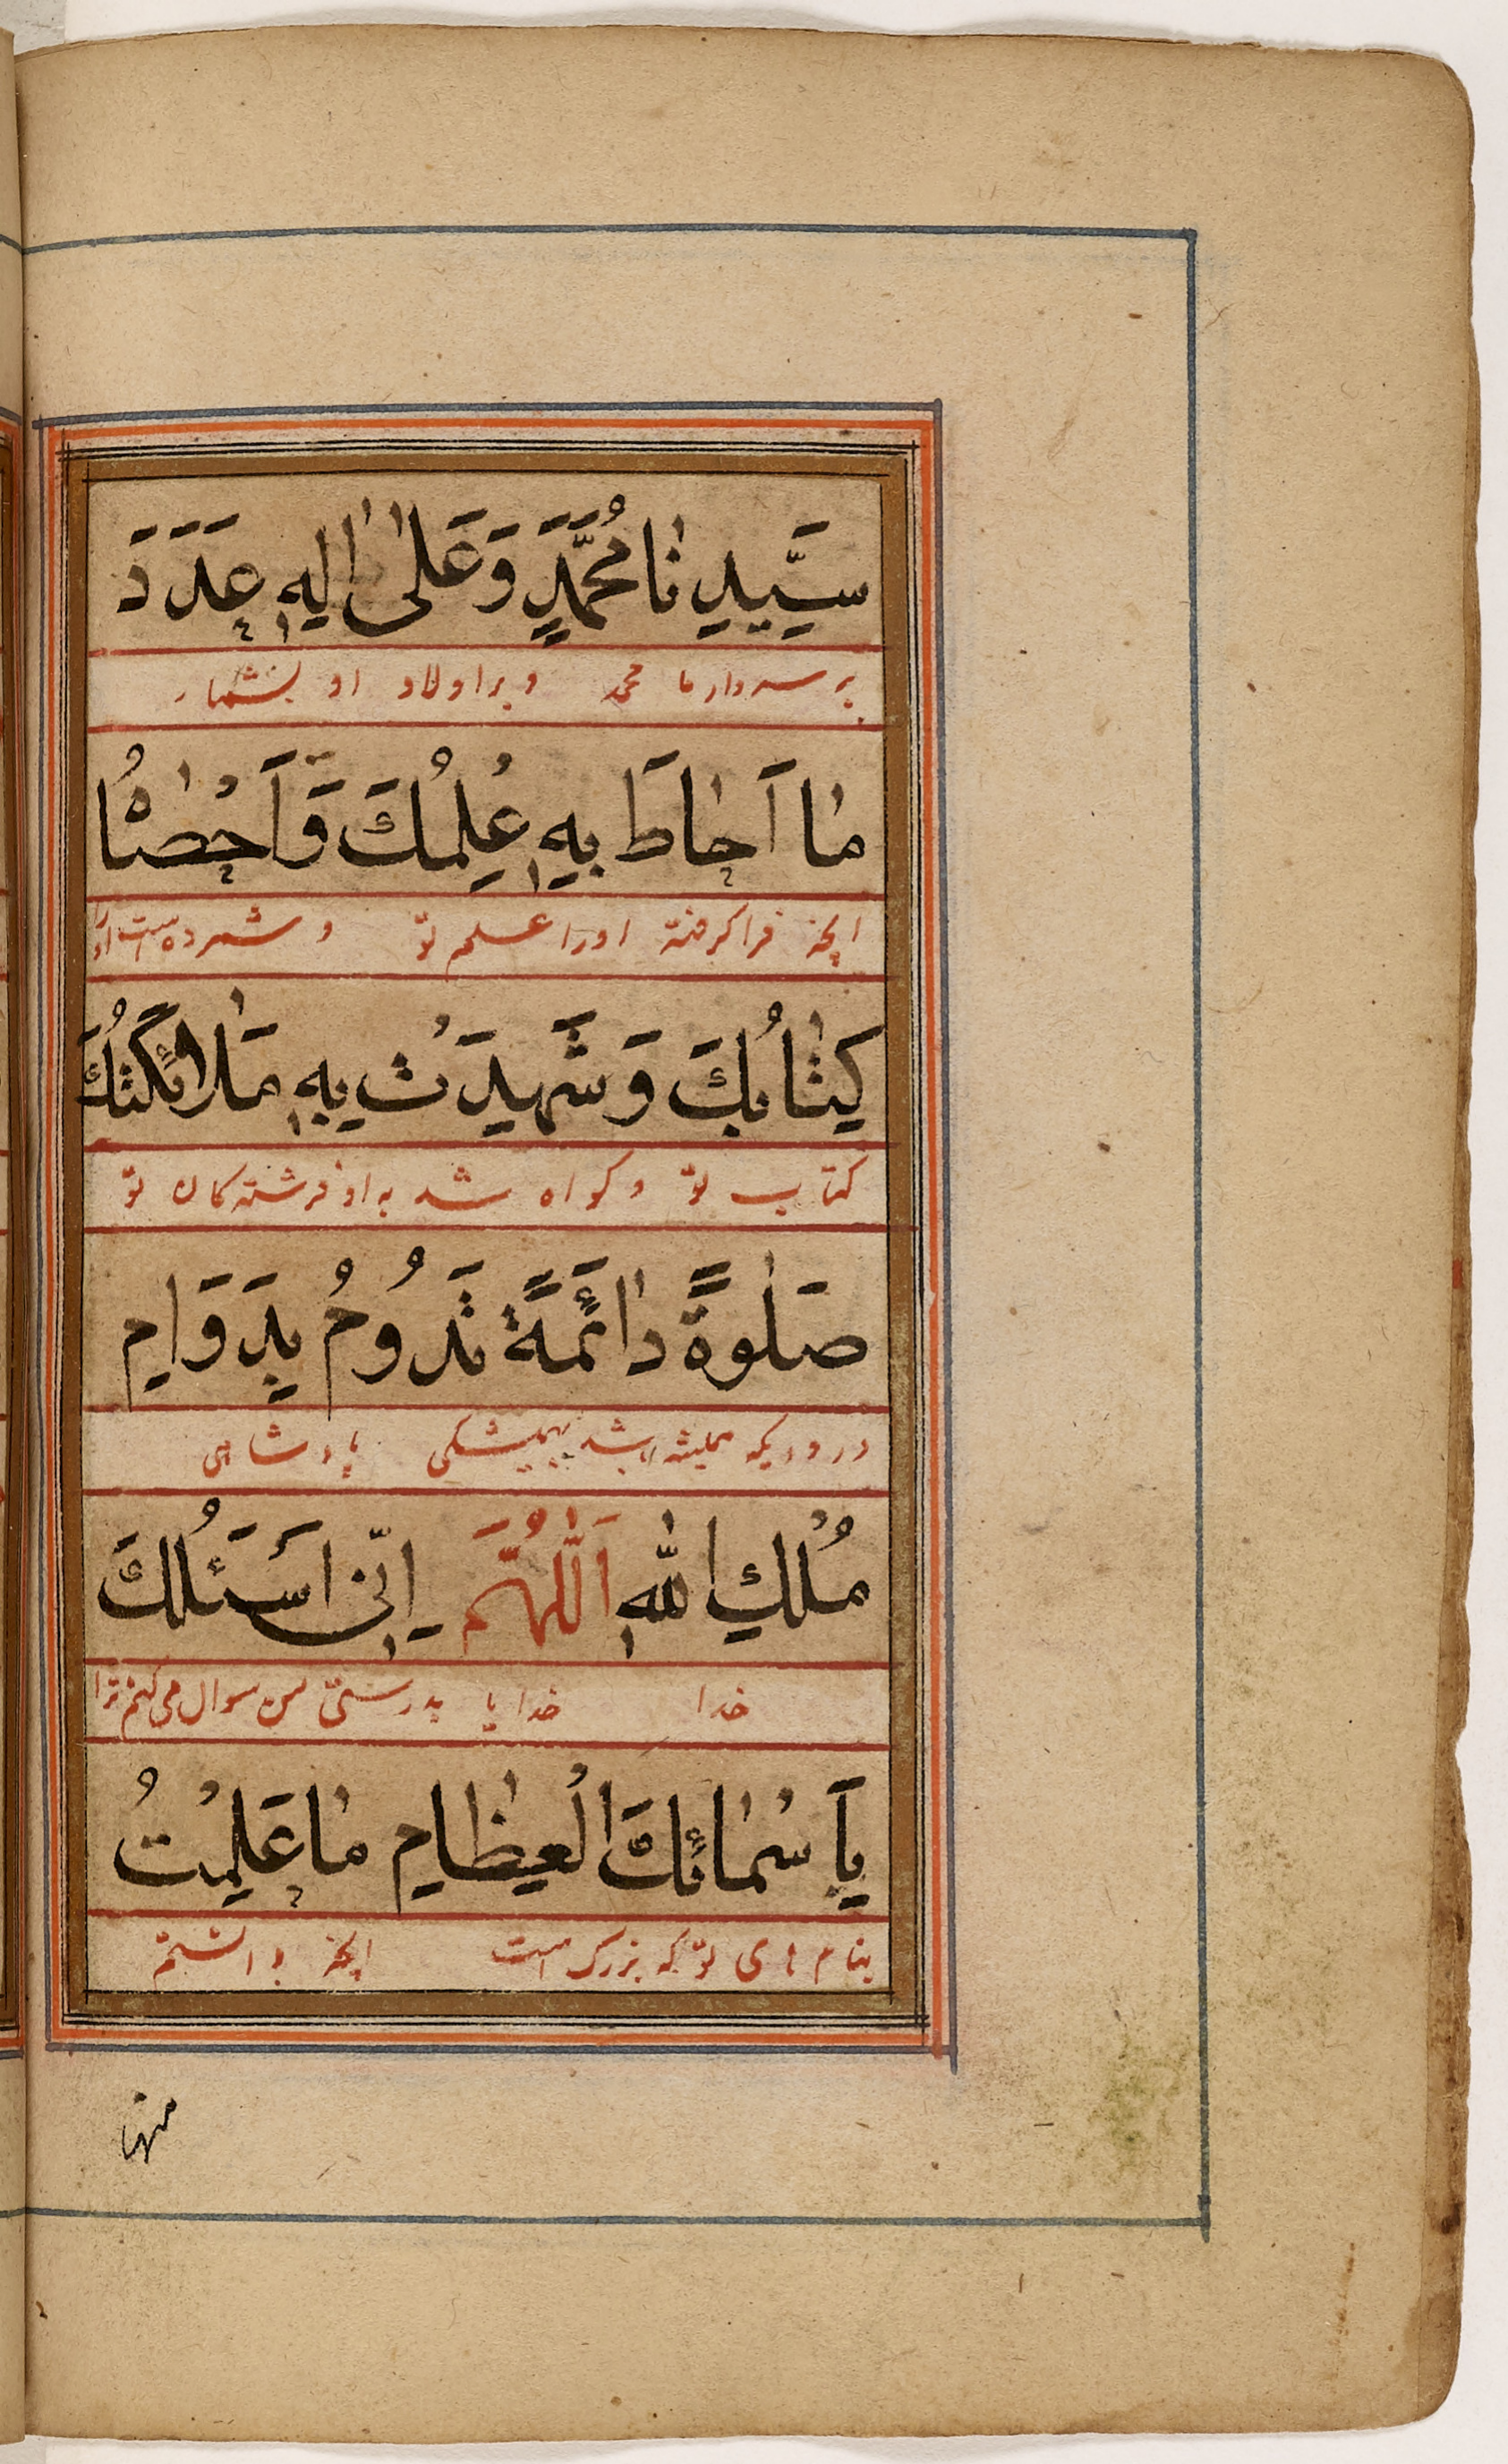 سَيِّدِنَا مُحَمَّدٍ وَعَلٰى اٰلِهٖ عَدَدَ
بر سردار ما محمد و بر اولاد او بشمار
مَا اَحَاطَ بِهٖ عِلْمُكَ وَاَحْصَاهُ
انچه فرا گرفته اورا علم تو و شمرده است اورا
كِتَابُكَ وَشَهِدَتْ بِهٖ مَلَائِكَتُكَ
کتاب تو و کواه شد به او فرشته کان تو
صَلٰوةً دَائِمَةً تَدُوْمُ بِدَوَامِ
درودیکه همیشه باشد بهمیشکی پادشاهی
مُلْكِ اللهِ اَللّٰهُمَّ اِنِّى اَسْئَلُكَ
خدا خدایا بدرستی من سوال می کنم ترا
بِاَسْمَائِكَ الْعِظَامِ مَا عَلِمْتُ
بنام های تو که بزرک است انچه دانستم
منها